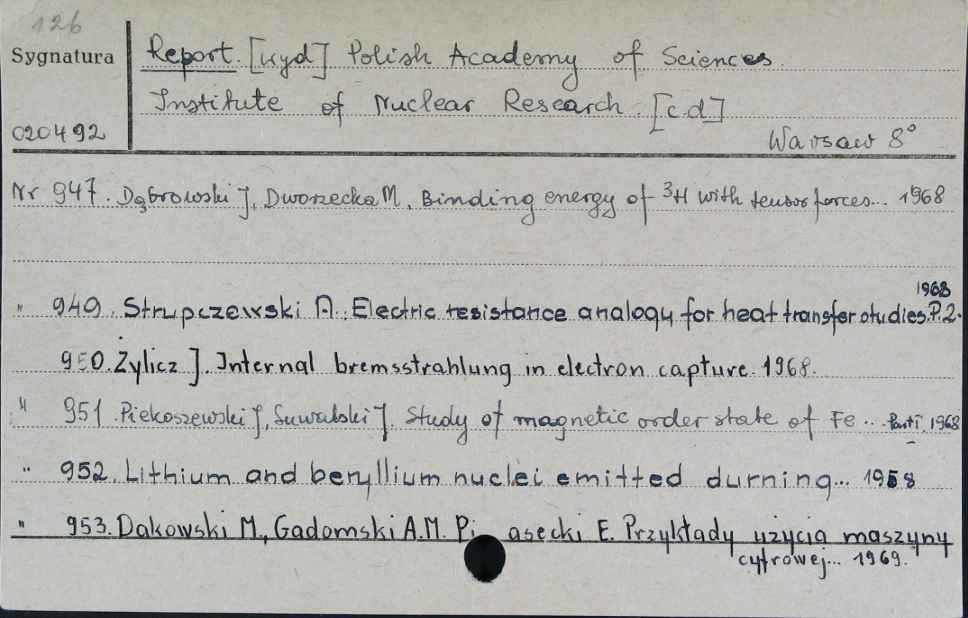 126
Sygnatura
Report. [wyd] Polish Academy of Sciences
Institute of Nuclear Research. [cd]
020492
Warsaw 8°
Nr 947. Dąbrowski J, Dworzecka M, Binding energy of ³H with tensor forces... 1968
" 949. Strupczewski A. Electric resistance analogy for heat transfer studies. P.2. 1968
950. Żylicz J. Internal bremsstrahlung in electron capture. 1968.
" 951. Piekoszewski J, Suwalski J. Study of magnetic order state of Fe... Part I. 1968
" 952. Lithium and beryllium nuclei emitted durning... 1968
" 953. Dakowski M., Gadomski A.M. Piasecki E. Przykłady użycia maszyny
cyfrowej... 1969.